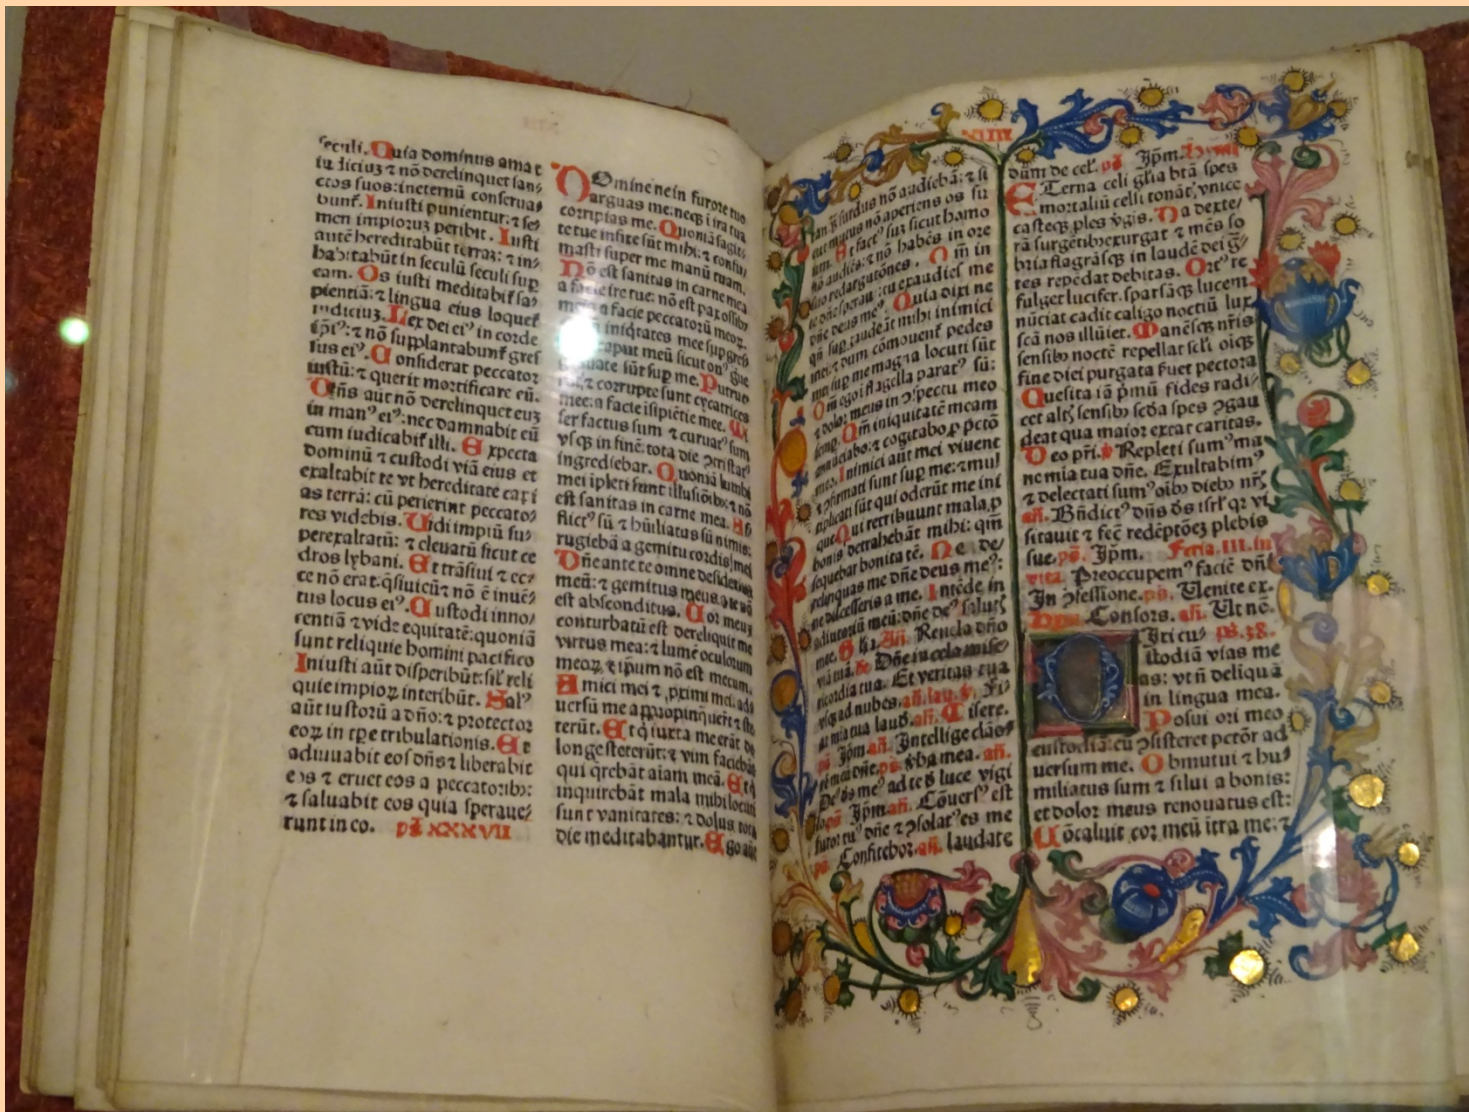 seculi. Quia dominus amat
iudiciuz ⁊ nõ derelinquet san⸗
ctos suos: ineternũ conserua⸗
buntˀ. Iniusti punientur: ⁊ se⸗
men impioruz peribit. Iusti
autẽ hereditabũt terraz: ⁊ in⸗
habitabũt in seculũ seculi sup
eam. Os iusti meditabitˀ sa⸗
pientiã: ⁊ lingua eius loquetˀ
iudiciuz. Lex dei eiꝰ in corde
ipiꝰ: ⁊ nõ supplantabuntˀ gres
sus eiꝰ. Considerat peccator
iustũ: ⁊ querit mortificare eũ.
Dñs aũt nõ derelinquet euz
in manꝰ eiꝰ: nec damnabit eũ
cum iudicabitˀ illi. Expecta
dominũ ⁊ custodi viã eius et
exaltabit te vt hereditate capi
as terrã: cũ perierint peccato⸗
res videbis. Uidi impiũ su⸗
perexaltatũ: ⁊ eleuatũ sicut ce
dros lybani. Et trãsiui ⁊ ec⸗
ce nõ erat: q̃siui eũ ⁊ nõ ẽ inuẽ⸗
tus locus eiꝰ. Custodi inno⸗
centiã ⁊ vide equitatẽ: quoniã
sunt reliquie homini pacifico
Iniusti aũt disperibũt: sil̃ reli
quie impioꝝ interibũt. Salꝰ
aũt iustorũ a dño: ⁊ protector
eoꝝ in tpe tribulationis. Et
adiuuabit eos dñs ⁊ liberabit
eos ⁊ eruet eos a peccatorib⁊:
⁊ saluabit eos quia speraue⸗
runt in eo. ps XXXVII
Domine ne in furore tuo
arguas me: neq̃ i ira tua
corripias me. Quoniã sagit⸗
te tue infixe sũt mihi: ⁊ confir⸗
masti super me manũ tuam.
Nõ est sanitas in carne mea
a facie ire tue: nõ est pax ossib⁊
meis a facie peccatorũ meoꝝ.
iniq̃tates mee sup gres
caput meũ: sicut onꝰ gra
grauate sũt sup me. Putrue
⁊ corrupte sunt cycatrices
mee: a facie isipiẽtie mee. Mi
ser factus sum ⁊ curuatꝰ sum
vsq̃ in finẽ: tota die ↄtristatꝰ
ingrediebar. Quoniã lumbi
mei ipleti sunt illusiõib⁊: ⁊ nõ
est sanitas in carne mea. Af
flictꝰ sũ ⁊ hũiliatus sũ nimis:
rugiebã a gemitu cordis mei
Dñe ante te omne desideriuz
meũ: ⁊ gemitus meus a te nõ
est absconditus. Cor meuz
conturbatũ est dereliquit me
virtus mea: ⁊ lumẽ oculorum
meoꝝ ⁊ ipũm nõ est mecum.
Amici mei ⁊ ꝓximi mei: ad⸗
uersũ me appropinq̃uerũt ⁊ ste
terũt. Et q̃ iuxta me erãt de
longe steterũt: ⁊ vim faciebãt
qui q̃rebãt aĩam meã. Et q̃
inquirebãt mala mihi locuti
sunt vanitates: ⁊ dolus tota
die meditabantur. Ego aũt
XIIII
tan q̃ surdus nõ audiebã: ⁊ si
cut mutus nõ aperiens os su
um. Et factꝰ suz sicut homo
nõ audiẽs: ⁊ nõ habẽs in ore
suo redargutiões. Qm̃ in
te dñe speraui: tu exaudies me
dñe deus meꝰ. Quia dixi ne
qñ supgaudeãt mihi inimici
mei: ⁊ dum cõmouentˀ pedes
mei sup me magna locuti sũt
Qm̃ ego i flagella paratꝰ sũ:
⁊ dolor meus in ↄspectu meo
semp. Qm̃ iniquitatẽ meam
annũciabo: ⁊ cogitabo ꝓ pctõ
meo. Inimici aũt mei viuent
⁊ ↄfirmati sunt sup me: ⁊ mul
tiplicati sũt qui oderũt me ini
que. Qui retribuunt mala ꝓ
bonis detrahebãt mihi: qm̃
sequebar bonitatẽ. Ne de⸗
relinquas me dñe deus meꝰ:
ne discesseris a me. Intẽde in
adiutoriũ meũ: dñe deꝰ salutˀ
mee. Añ. Reuela dño
viã tuã. Dñe in celo mise⸗
ricordia tua. Et veritas tua
vsq̃ ad nubes.
Ipm añ. Intellige clãs
meã dñe. ps. Vba mea. añ.
Deˀ ds meꝰ ad te d luce vigi
lo. ps. Ipm. añ. Cõuersꝰ est
furor tuꝰ dñe ⁊ ↄsolatꝰ es me
ps. Confitebor. añ. Laudate
dũm de cel. ps. Ipm. Hymꝰ
Eterna celi gl̃ia btã spes
mortaliũ celsi tonãtˀ vnice
casteq̃ ples v̾gis. Da dexte⸗
rã surgẽtib⁊ exurgat ⁊ mẽs so
bria flagrãsq̃ in laudẽ dei g̃⸗
tes repẽdat debitas. Ortꝰ re
fulget lucifer. sparsãq̃ lucem
nũciat cadit caligo noctiũ lux
scã nos illũiet. Manẽsq̃ nr̃is
sensib⁊ noctẽ repellat scl̃i oĩq̃
fine diei purgata s̾uet pectora
Quesita iã p̃mũ fides radi⸗
cet altˀ sensib⁊ scd̃a spes ↄgau
deat qua maior extat caritas.
Deo pr̃i. Repleti sumꝰ ma
ne mia tua dñe. Exultabimꝰ
⁊ delectati sumꝰ oib⁊ dieb⁊ nr̃s
añ. Bñdictꝰ dñs ds isrl̃ qr vi
sitauit ⁊ fec̃ redẽptõez plebis
sue. ps. Ipm. Feria. III. in
vita. Preoccupemꝰ faciẽ dñi
In ↄfessione. ps. Uenite ex.
Hym Consors. añ. Ut nõ.
ps. 38.
stodiã vias me
as: vt ñ deliquã
in lingua mea.
Posui ori meo
custodiã: cũ ↄsisteret pctõr ad
uersum me. Obmutui ⁊ hu⸗
miliatus sum ⁊ silui a bonis:
et dolor meus renouatus est:
Cõcaluit cor meũ itra me: ⁊